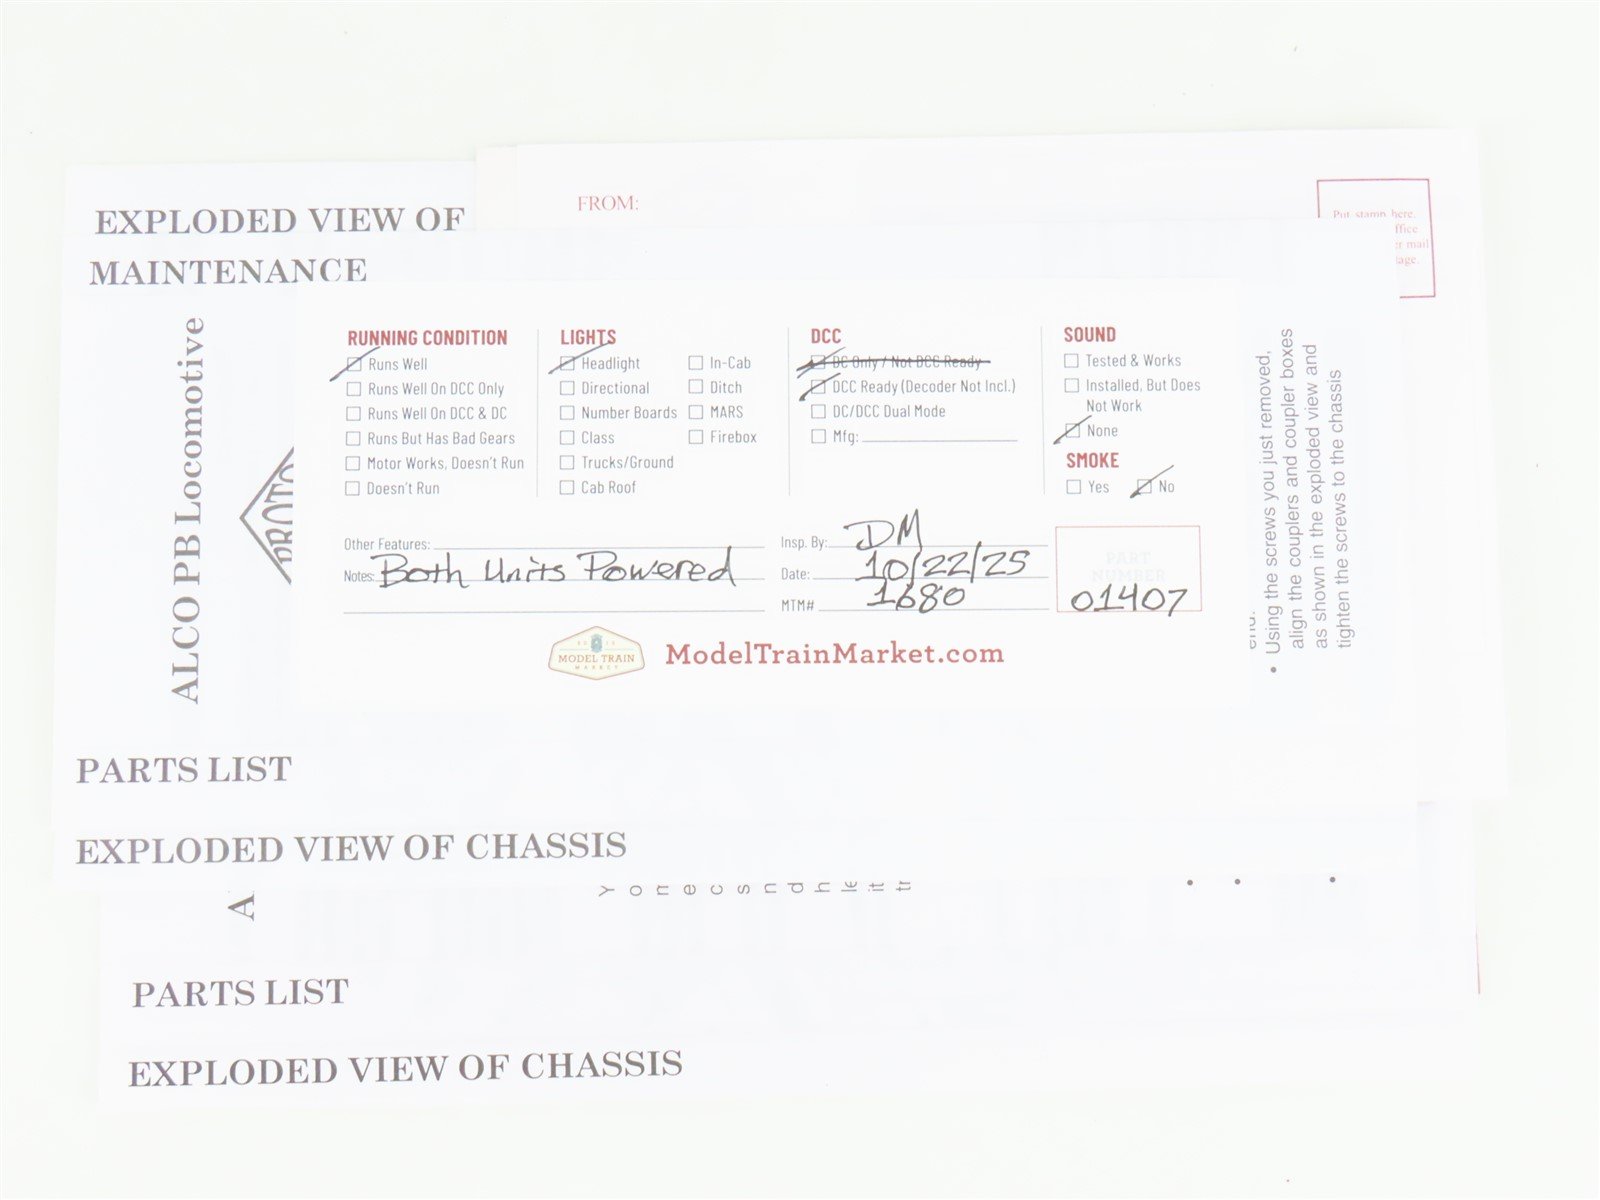 EXPLODED VIEW OF
MAINTENANCE
FROM:
Put stamp here.
ffice
r mail
age.
ALCO PB Locomotive
PROTO
RUNNING CONDITION
Runs Well
Runs Well On DCC Only
Runs Well On DCC & DC
Runs But Has Bad Gears
Motor Works, Doesn't Run
Doesn't Run
LIGHTS
Headlight
Directional
Number Boards
Class
Trucks/Ground
Cab Roof
In-Cab
Ditch
MARS
Firebox
DCC
DC Only / Not DCC Ready
DCC Ready (Decoder Not Incl.)
DC/DCC Dual Mode
Mfg:
SOUND
Tested & Works
Installed, But Does
Not Work
None
SMOKE
Yes No
Other Features:
Notes: Both Units Powered
Insp. By: DM
Date: 10/22/25
MTM# 1680
PART
NUMBER
01407
MODEL TRAIN
MARKET
ModelTrainMarket.com
end.
• Using the screws you just removed,
align the couplers and coupler boxes
as shown in the exploded view and
tighten the screws to the chassis
PARTS LIST
EXPLODED VIEW OF CHASSIS
A
PARTS LIST
EXPLODED VIEW OF CHASSIS